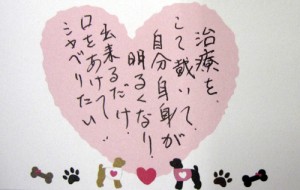 治療を.
して戴いて
自分自身が
明るくなり!
出来るだけ.
口をあけて
シャベリたい.